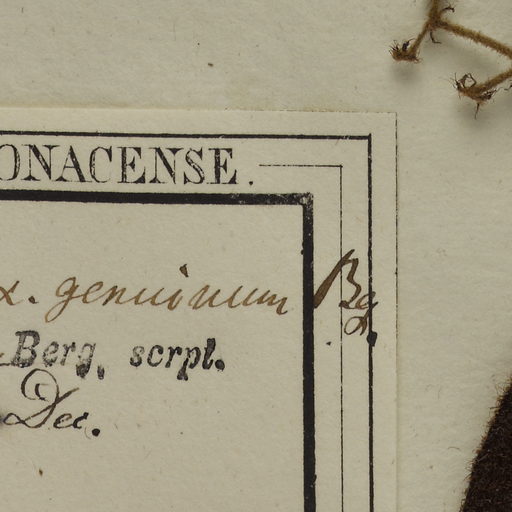 ONACENSE.
α. genuinum Bg.
Berg. scrpt.
Dec.